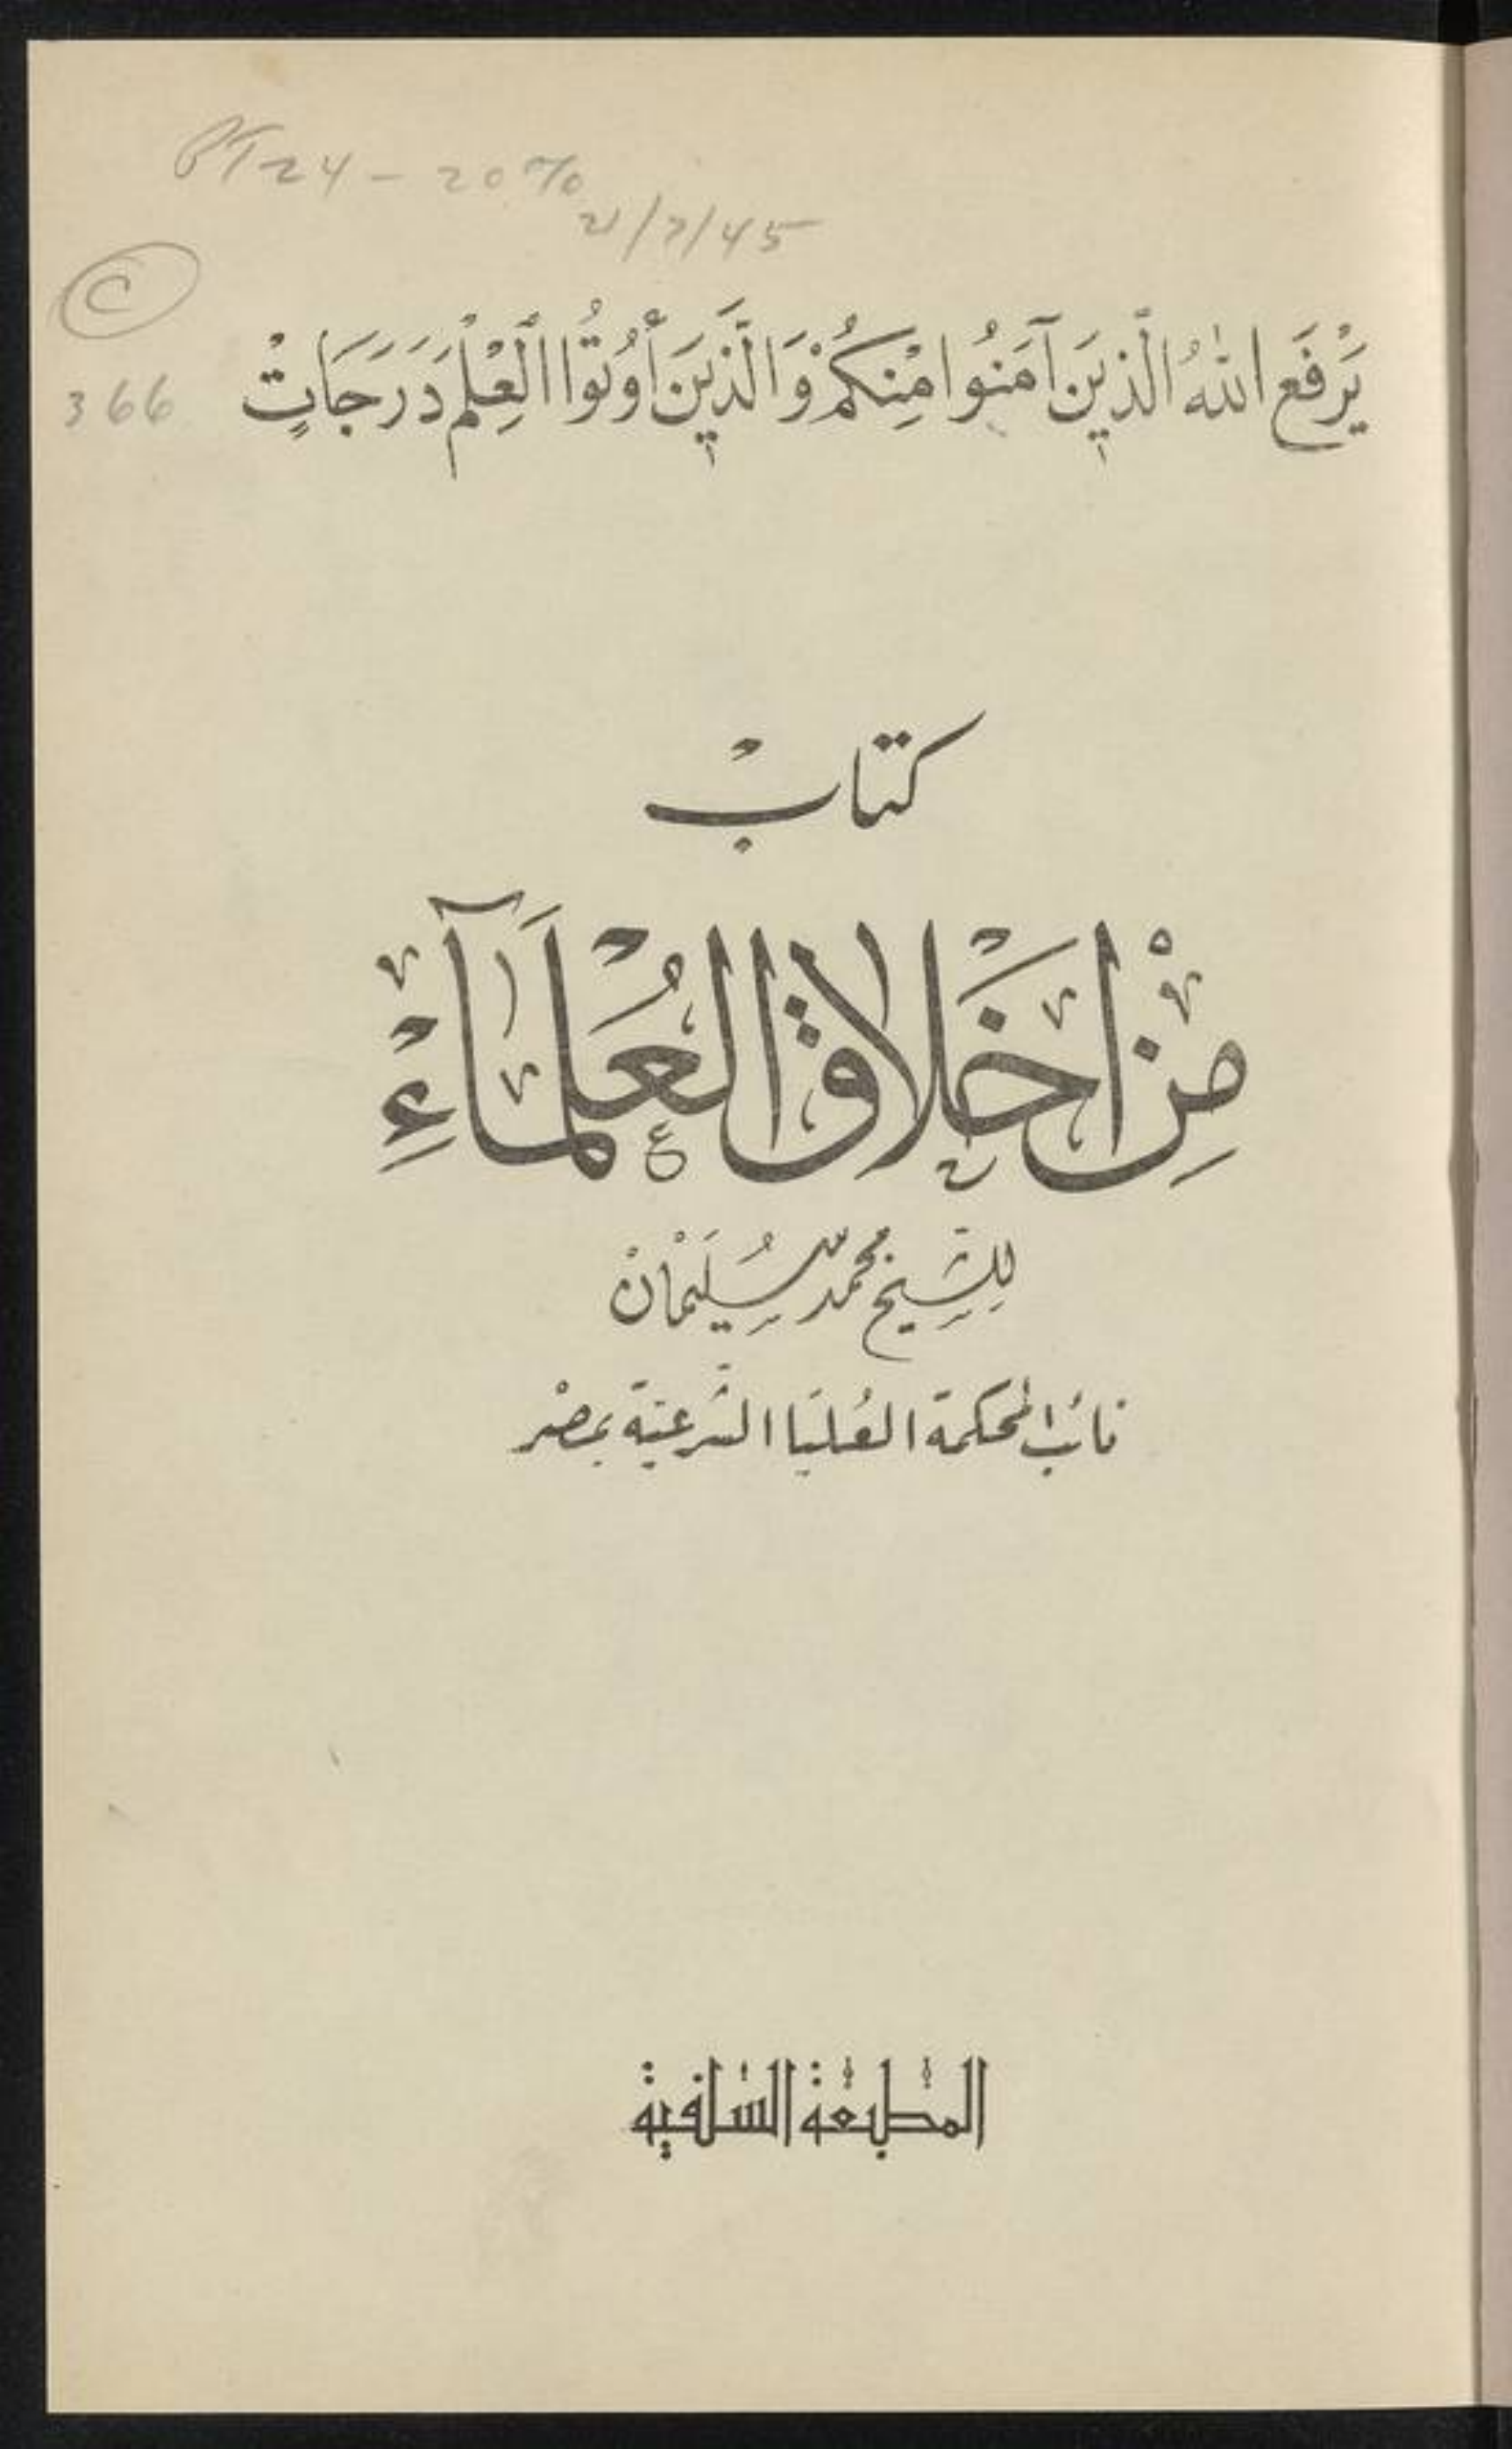 PT24 - 20%
21/7/45
C
366
يَرْفَعِ اللّٰهُ الَّذِينَ آمَنُوا مِنْكُمْ وَالَّذِينَ أُوتُوا الْعِلْمَ دَرَجَاتٍ
كتاب
مِنْ اَخْلَاقِ الْعُلَمَآءِ
لِلشّيخ محمد سُليَمان
نائب المحكمة العُليَا الشّرعيّة بمصْر
المطبعة السلفية